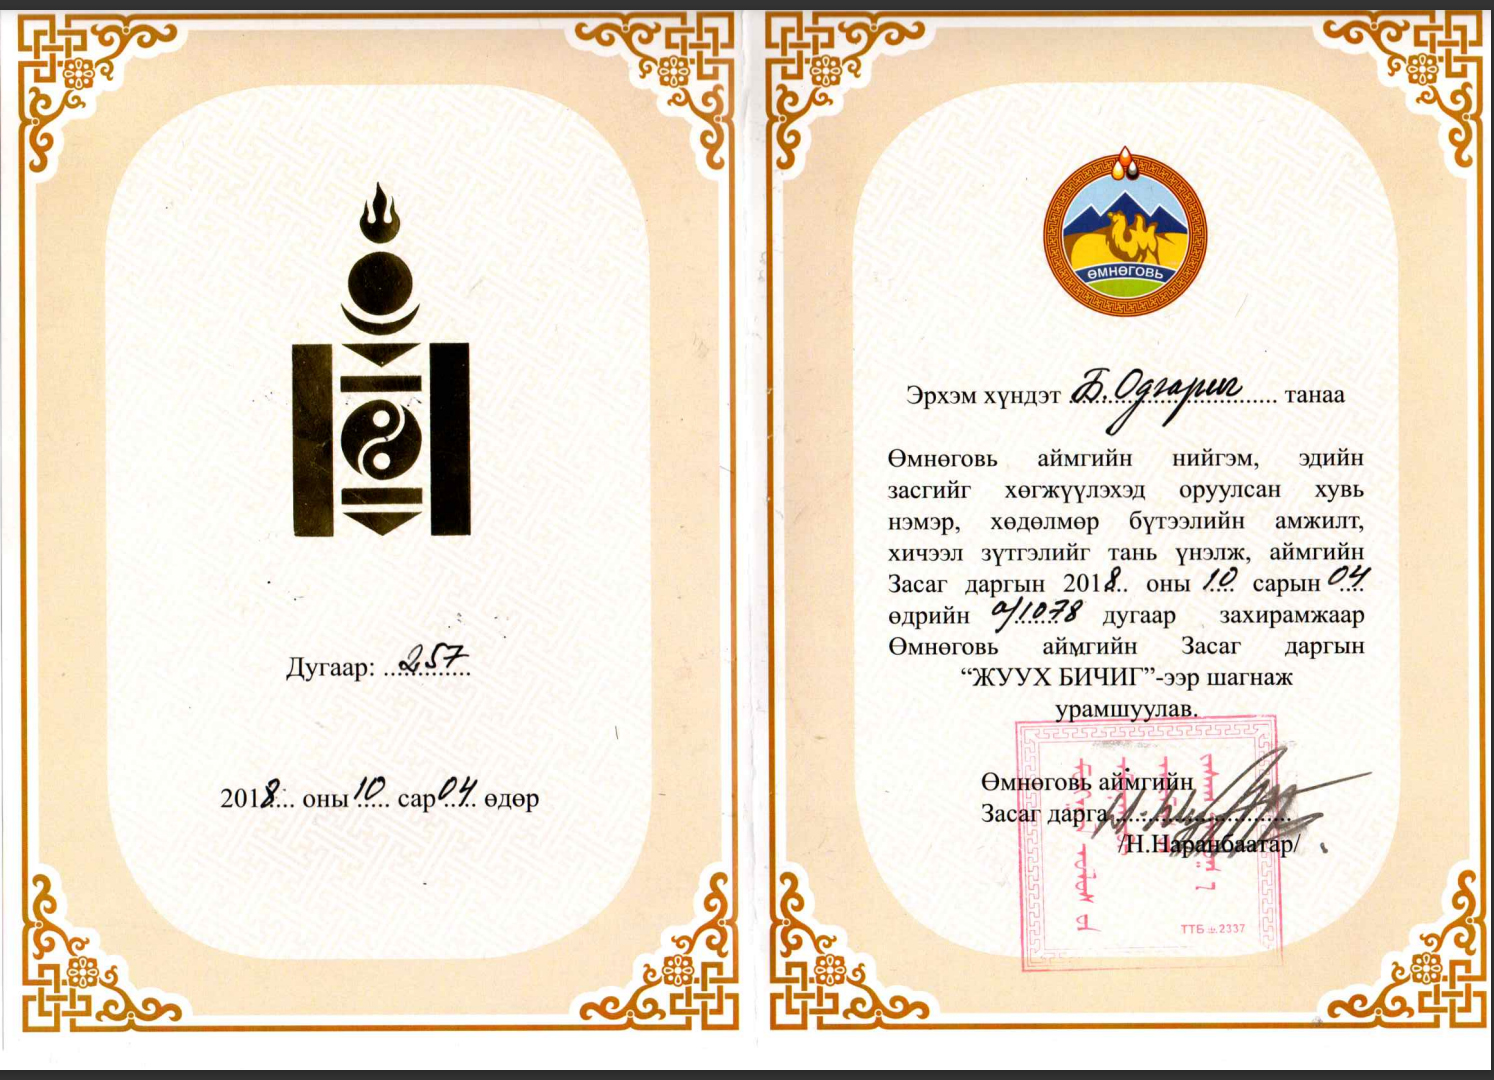 Дугаар: 257
2018 оны 10 сар 04 өдөр
ӨМНӨГОВЬ
Эрхэм хүндэт Б. Одгариг танаа
Өмнөговь аймгийн нийгэм, эдийн
засгийг хөгжүүлэхэд оруулсан хувь
нэмэр, хөдөлмөр бүтээлийн амжилт,
хичээл зүтгэлийг тань үнэлж, аймгийн
Засаг даргын 2018 оны 10 сарын 04
өдрийн а/1078 дугаар захирамжаар
Өмнөговь аймгийн Засаг даргын
“ЖУУХ БИЧИГ”-ээр шагнаж
урамшуулав.
Өмнөговь аймгийн
Засаг дарга
/Н.Наранбаатар/
ТТБ 2337